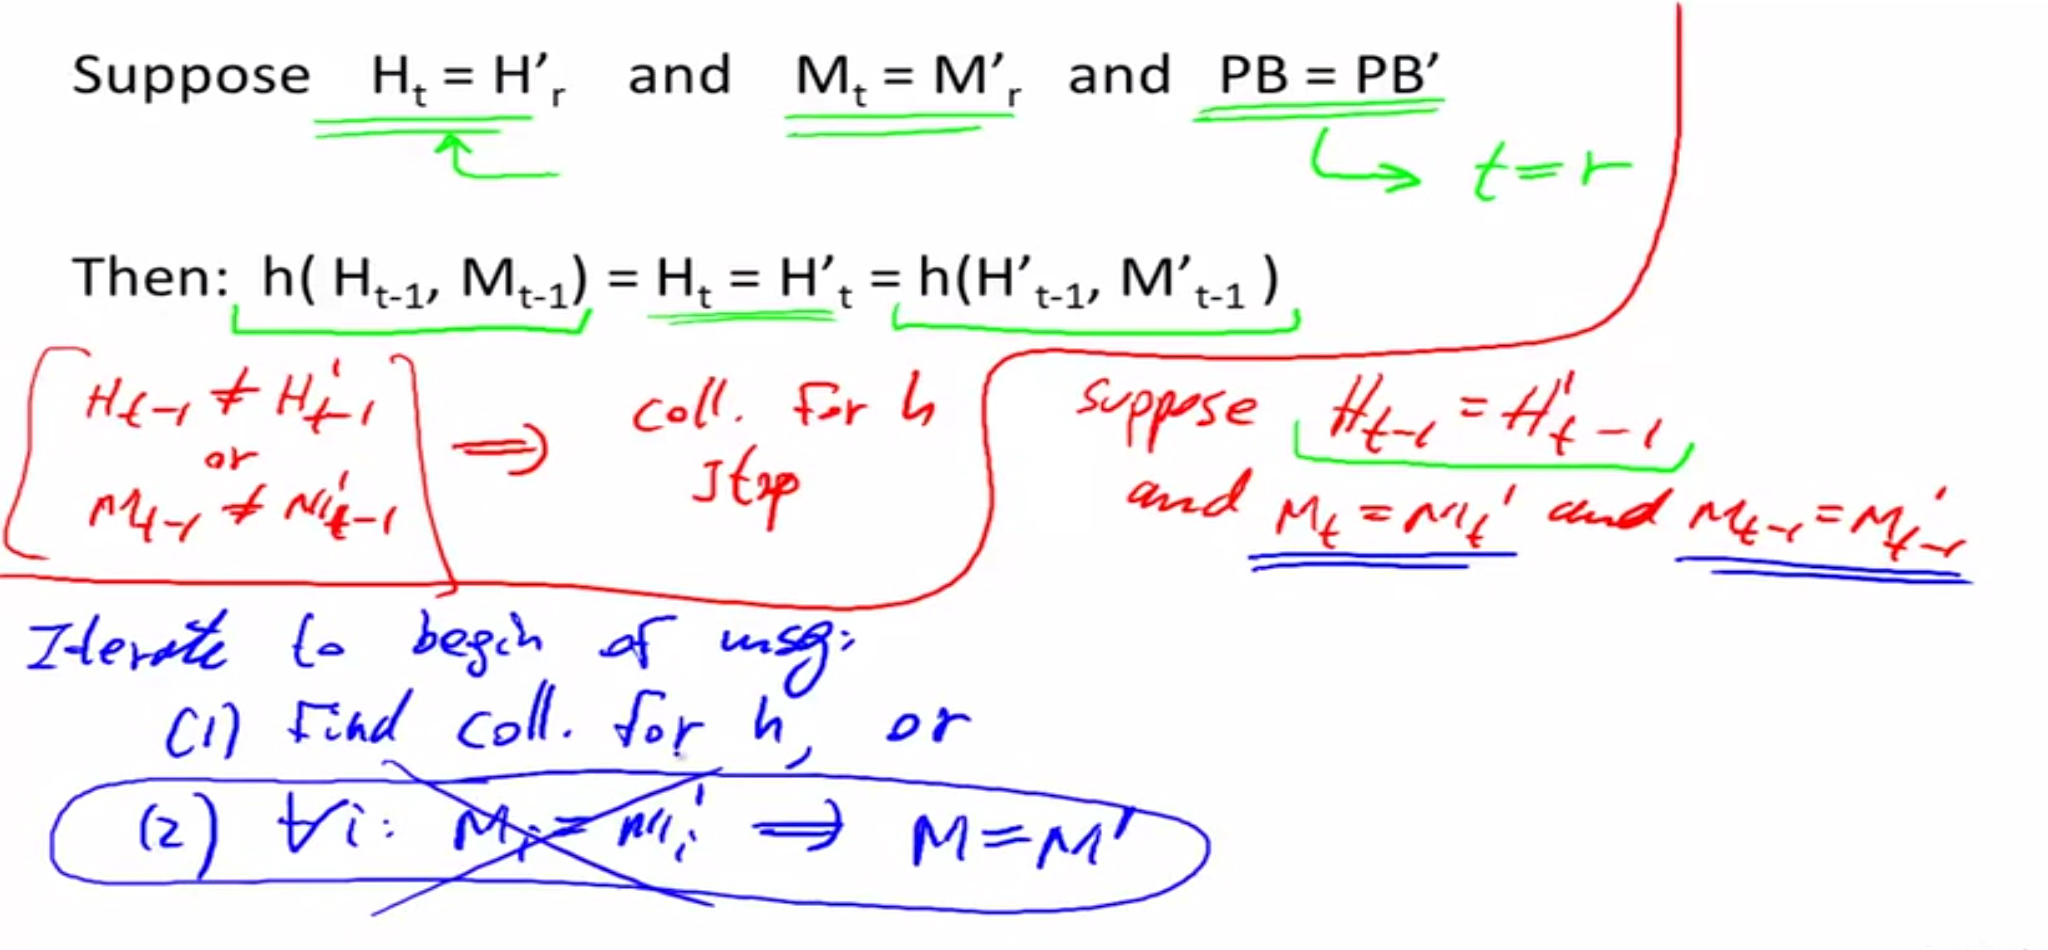 Suppose H_t = H'_r and M_t = M'_r and PB = PB'
t = r
Then: h( H_t-1, M_t-1) = H_t = H'_t = h(H'_t-1, M'_t-1 )
H_t-1 ≠ H'_t-1
or
M_t-1 ≠ M'_t-1
⇒ coll. for h
stop
suppose H_t-1 = H'_t-1
and M_t = M'_t and M_t-1 = M'_t-1
Iterate to begin of msg:
(1) Find coll. for h, or
(2) ∀i: M_i = M'_i ⇒ M = M'